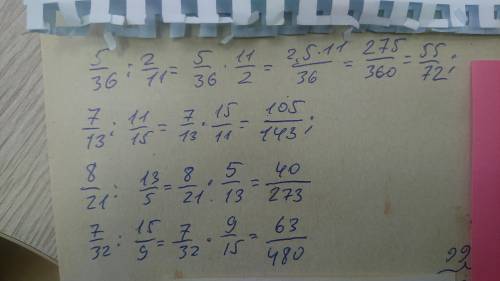 5/36 : 2/11 = 5/36 · 11/2 = 2,5·11/36 = 275/360 = 55/72;
7/13 : 11/15 = 7/13 · 15/11 = 105/143;
8/21 : 13/5 = 8/21 · 5/13 = 40/273
7/32 : 15/9 = 7/32 · 9/15 = 63/480
99